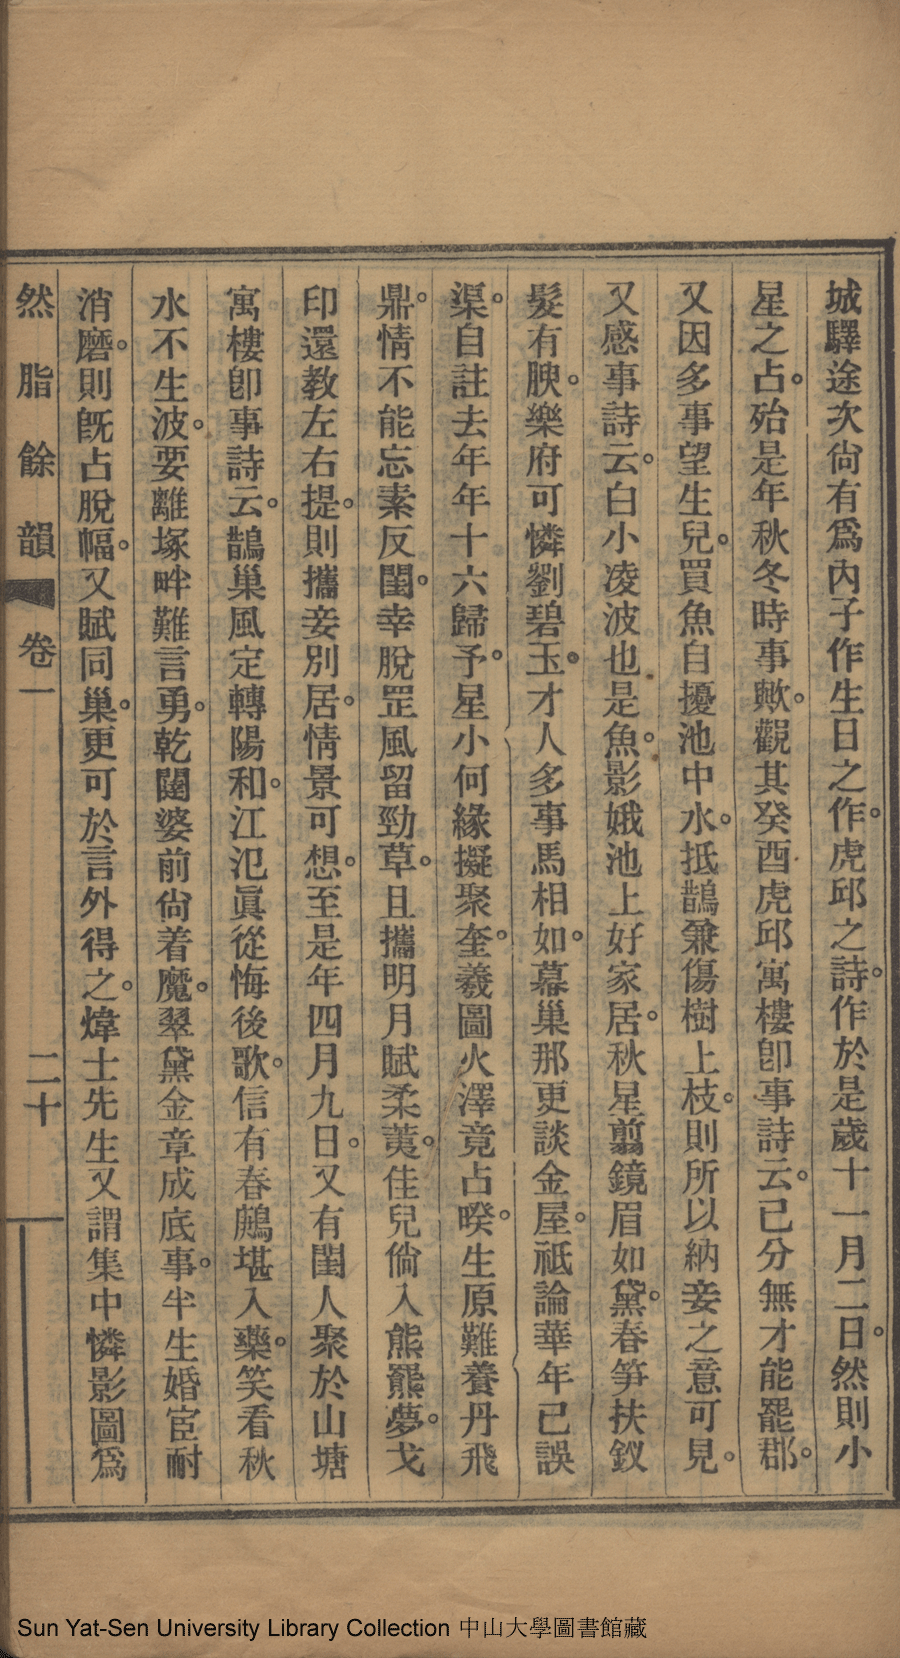 城驛途次尙有爲內子作生日之作。虎邱之詩。作於是歲十一月二日。然則小
星之占。殆是年秋冬時事歟。觀其癸酉虎邱寓樓卽事詩云。已分無才能罷郡。
又因多事望生兒。買魚自擾池中水。抵鵲兼傷樹上枝。則所以納妾之意可見。
又感事詩云。白小凌波也是魚。影娥池上好家居。秋星翦鏡眉如黛。春笋扶釵
髮有腴。樂府可憐劉碧玉。才人多事馬相如。幕巢那更談金屋。祗論華年已誤
渠。自註去年年十六歸予。星小何緣擬聚奎。羲圖火澤竟占暌。生原難養丹飛
鼎。情不能忘素反閨。幸脫罡風留勁草。且攜明月賦柔荑。佳兒倘入熊羆夢。戈
印還教左右提。則攜妾別居。情景可想。至是年四月九日。又有閨人聚於山塘
寓樓卽事詩云。鵲巢風定轉陽和。江汜眞從悔後歌。信有春鶊堪入藥。笑看秋
水不生波。要離塚畔難言勇。乾闥婆前尙着魔。翠黛金章成底事。半生婚宦耐
消磨。則旣占脫幅。又賦同巢。更可於言外得之。煒士先生又謂集中憐影圖爲
然脂餘韻 卷一 二十
Sun Yat-Sen University Library Collection 中山大學圖書館藏